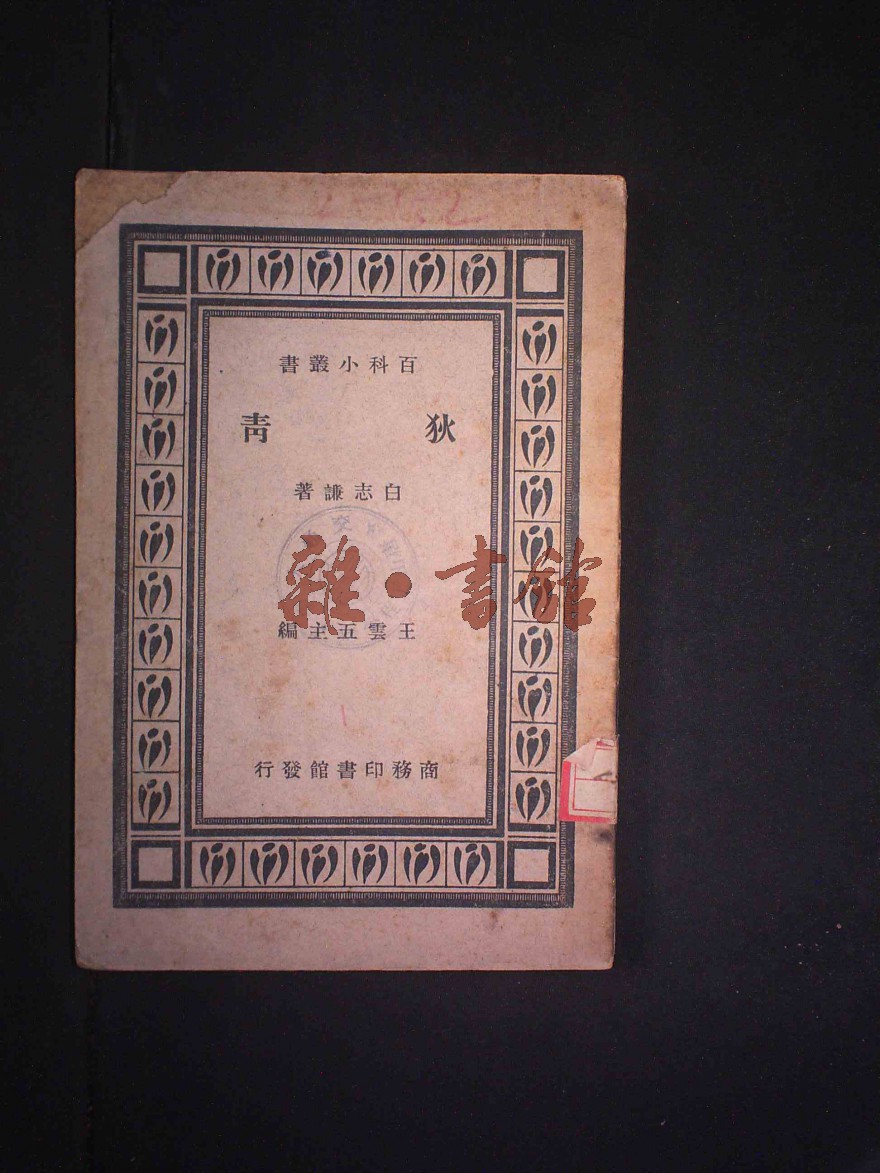 百科小叢書
狄青
白志謙著
雜·書館
王雲五主編
商務印書館發行